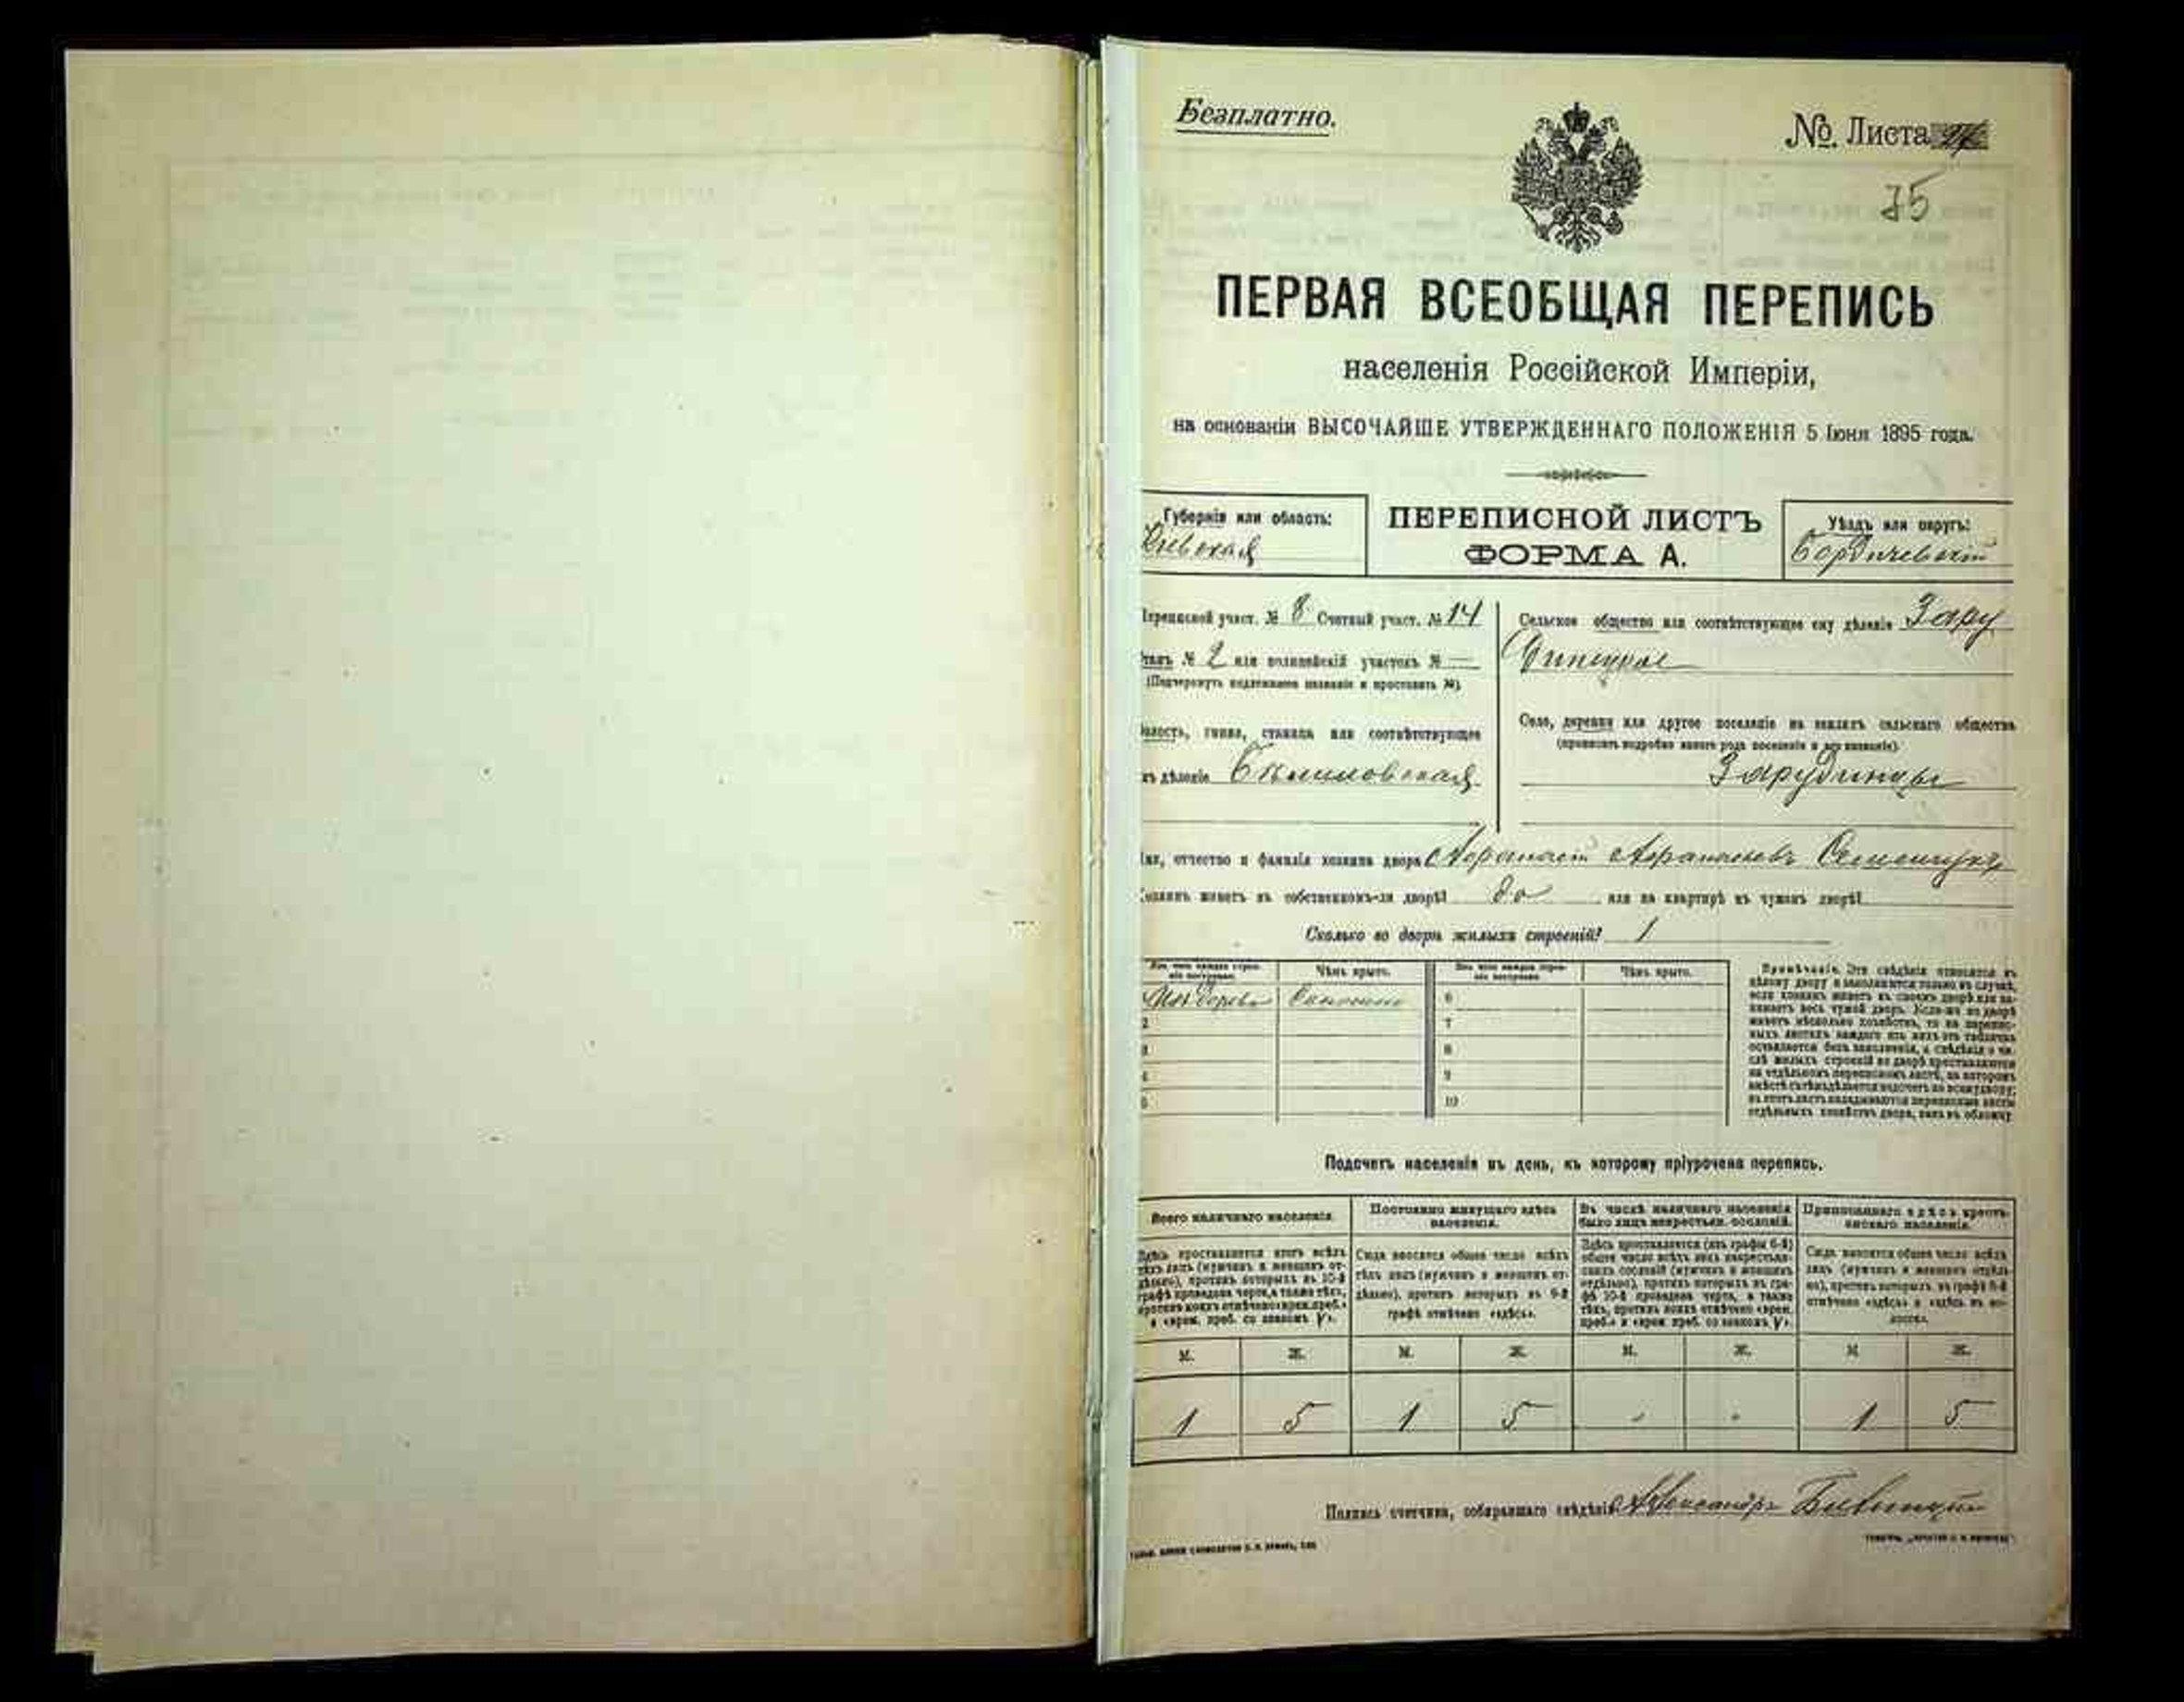 Безплатно.
№ Листа
75
ПЕРВАЯ ВСЕОБЩАЯ ПЕРЕПИСЬ
населенія Россійской Имперіи,
на основаніи ВЫСОЧАЙШЕ УТВЕРЖДЕННАГО ПОЛОЖЕНІЯ 5 Іюня 1895 года.
Губернія или область:
Кіевская
ПЕРЕПИСНОЙ ЛИСТЪ
ФОРМА А.
Уѣздъ или округъ:
Бердичевскій
Переписной участ. № 8 Счетный участ. № 14
Станъ № 2 или полицейскій участокъ № —
(Подчеркнуть подлежащее названіе и проставить №).
Волость, гмина, станица или соотвѣтствующее
къ дѣленіе
Сельское общество или соотвѣтствующее ему дѣленіе Зару
динецкое
Село, деревня или другое поселеніе на земляхъ сельскаго общества
(прописать подробно какого рода поселеніе и его названіе).
Зарудинцы
Имя, отчество и фамилія хозяина двора
Хозяинъ живетъ въ собственномъ-ли дворѣ? да или на квартирѣ въ чужомъ дворѣ?
Сколько во дворѣ жилыхъ строеній? 1
Изъ чего каждое строеніе построено. Чѣмъ крыто. Изъ чего каждое строеніе построено. Чѣмъ крыто.
Изъ дерева Соломою 6
2 7
3 8
4 9
5 10
Примѣчаніе. Эти свѣдѣнія относятся къ
цѣлому двору и заполняются только въ случаѣ,
если хозяинъ живетъ въ своемъ дворѣ или за-
нимаетъ весь чужой дворъ. Если-же во дворѣ
живетъ нѣсколько хозяйствъ, то на перепис-
ныхъ листахъ каждаго изъ нихъ эта табличка
оставляется безъ заполненія, а свѣдѣнія о чи-
слѣ жилыхъ строеній во дворѣ проставляются
на отдѣльномъ переписномъ листѣ, на которомъ
вмѣстѣ съ тѣмъ дѣлается подсчетъ по всему двору;
въ этотъ листъ вкладываются переписные листы
отдѣльныхъ хозяйствъ двора, какъ въ обложку.
Подсчетъ населенія въ день, къ которому пріурочена перепись.
Всего наличнаго населенія.
Здѣсь проставляется итогъ всѣхъ
тѣхъ лицъ (мужчинъ и женщинъ от-
дѣльно), противъ которыхъ въ 10-й
графѣ проведена черта, а также тѣхъ,
противъ коихъ отмѣчено «врем. преб.»
и «врем. преб. со знакомъ V».
Постоянно живущаго здѣсь
населенія.
Сюда вносится общее число всѣхъ
тѣхъ лицъ (мужчинъ и женщинъ от-
дѣльно), противъ которыхъ въ 9-й
графѣ отмѣчено «здѣсь».
Въ числѣ наличнаго населенія
было лицъ некрестьян. сословій.
Здѣсь проставляется (изъ графы 6-й)
общее число всѣхъ лицъ некрестьян-
скихъ сословій (мужчинъ и женщинъ
отдѣльно), противъ которыхъ въ гра-
фѣ 10-й проведена черта, а также
тѣхъ, противъ коихъ отмѣчено «врем.
преб.» и «врем. преб. со знакомъ V».
Приписаннаго здѣсь кресть-
янскаго населенія.
Сюда вносится общее число всѣхъ
лицъ (мужчинъ и женщинъ отдѣль-
но), противъ которыхъ въ графѣ 8-й
отмѣчено «здѣсь» и «здѣсь въ во-
лости».
М. Ж. М. Ж. М. Ж. М. Ж.
1 5 1 5 1 5
Подпись счетчика, собиравшаго свѣдѣнія Александръ